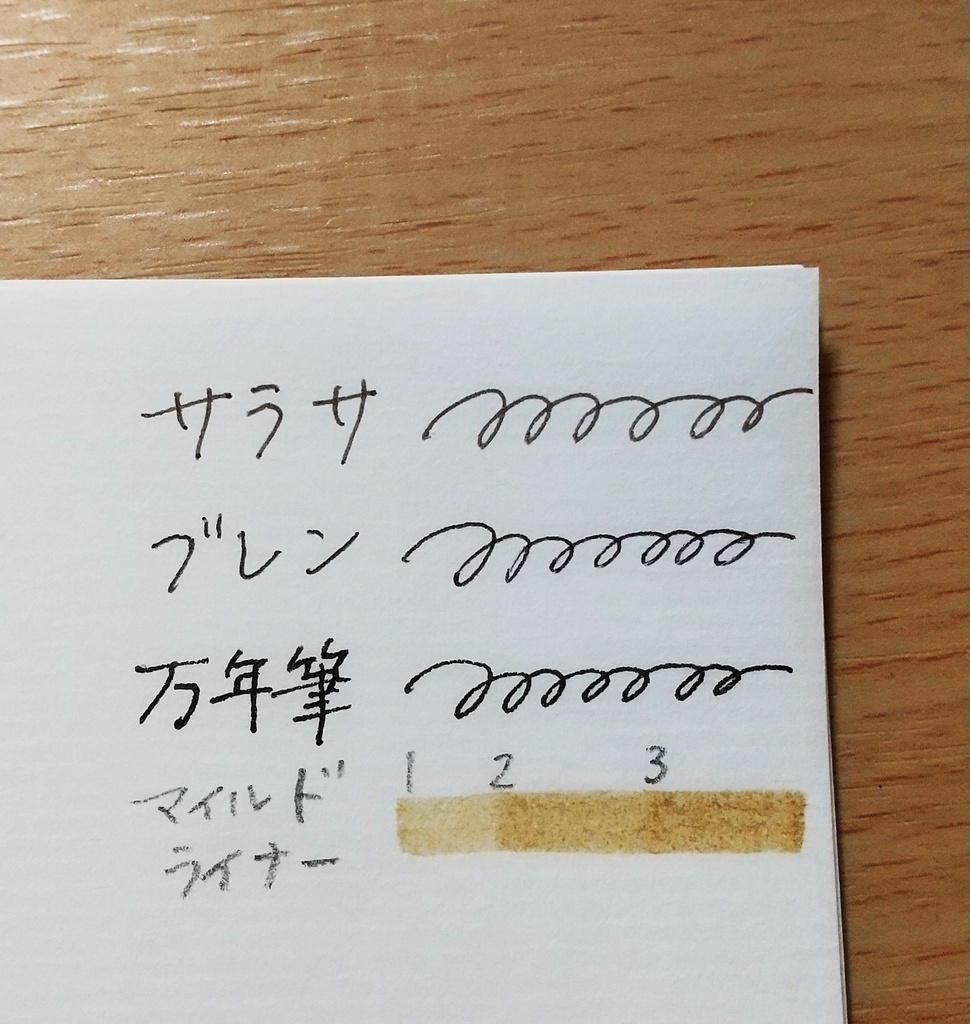 サラサ
ブレン
万年筆
1 2 3
マイルド
ライナー